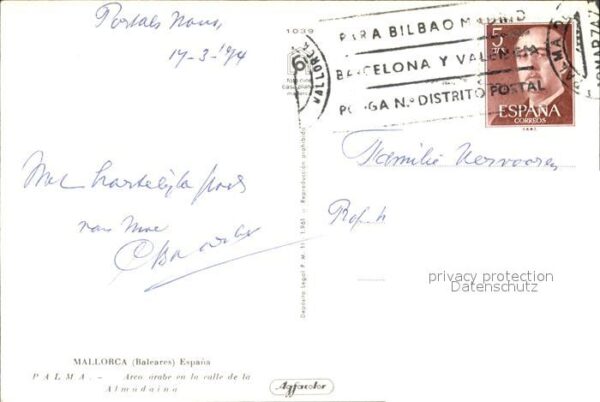 Portals Nous,
17-3-'74
Met hartelijke groet
van Mme
1039
PARA BILBAO MADRID
BARCELONA Y VALENCIA
PONGA N.º DISTRITO POSTAL
PALMA
MARZ
MALLORCA
5
PTS
ESPAÑA
CORREOS
Familie
privacy protection
Datenschutz
Depósito Legal P. M. 1.961 - Reproducción prohibida
MALLORCA (Baleares) España
PALMA. - Arco árabe en la calle de la
Almudaina
Agfacolor